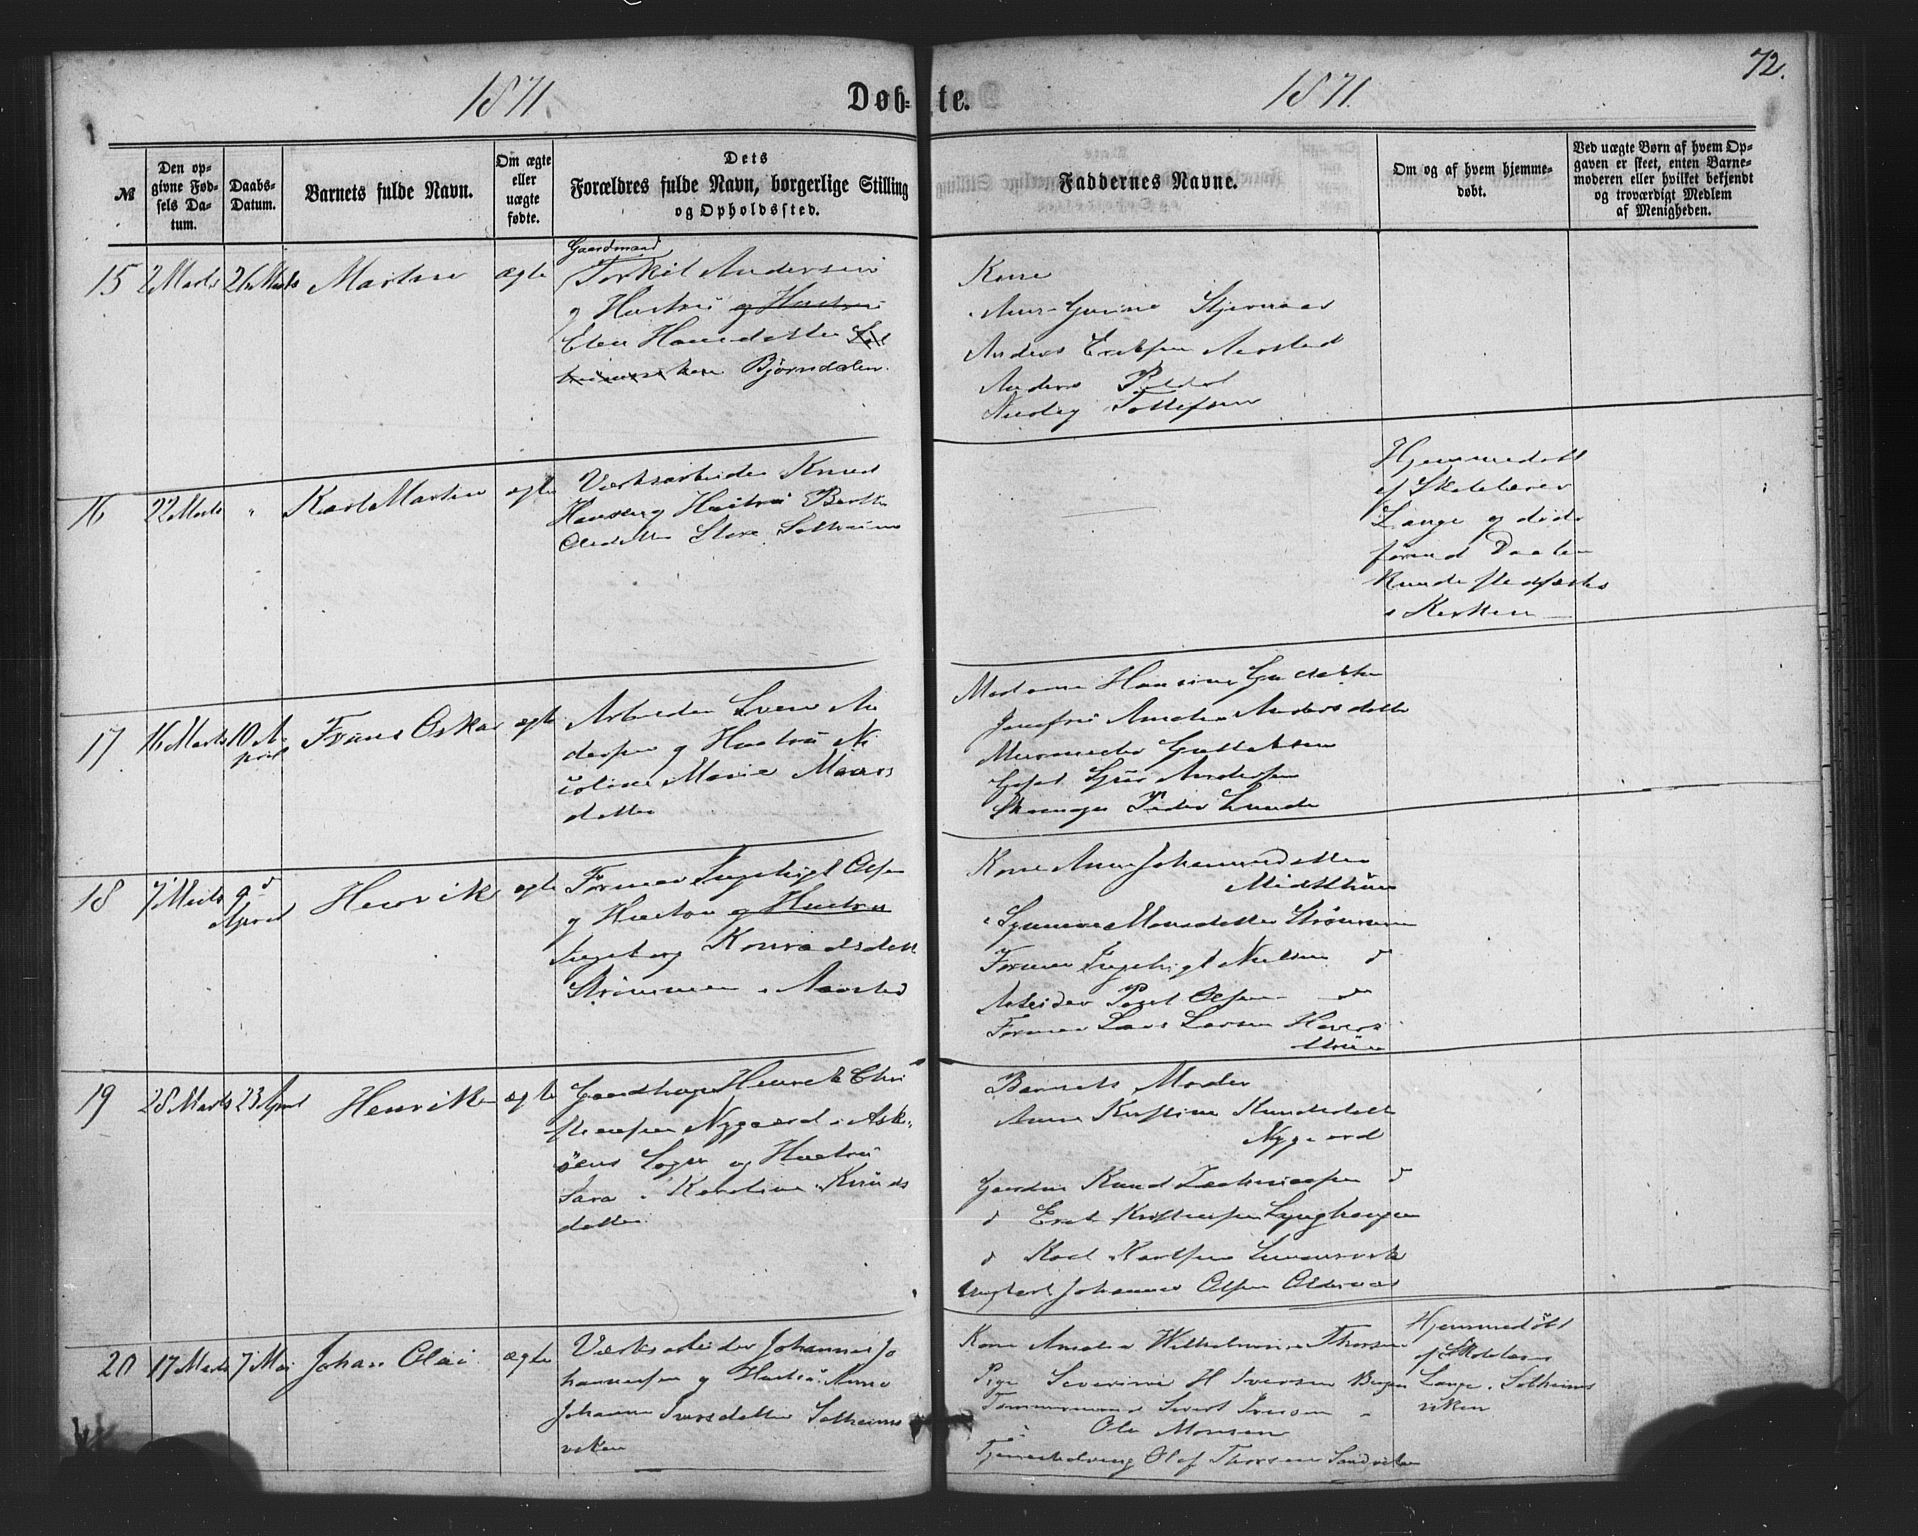 1871
Døb-te.
1871.
72.
№
Den opgivne Fødsels Datum.
Daabs-Datum.
Barnets fulde Navn.
Om ægte eller uægte fødte.
Dets Forældres fulde Navn, borgerlige Stilling og Opholdssted.
Faddernes Navne.
Om og af hvem hjemmedøbt.
Ved uægte Børn af hvem Opgaven er skeet, enten Barnemoderen eller hvilket bekjendt og troværdigt Medlem af Menigheden.
15
2 Marts
26 Marts
Martin
ægte
Gaardmand
Torkil Andersen
og Hustru og Hustru
Elen Hansdatter
Bjørndalen
Kone
Anders Eriksen Aarstad
Anders
Tollefsen
16
22 Marts
"
Karl Martin
ægte
Værksarbeider Knud
Hansen og Hustru Berthe
Olsdatter Store Solheim
Hjemmedøbt
af Skolelærer
Lange og døde
førend Daaben
kunde stadfæstes
i Kirken
17
16 Marts
10 April
Frans Oskar
ægte
Arbeider Sven An
dersen og Hustru Ni
coline Marie Mons
datter
Madame Hansine
Jomfru Amalie Andersdatter
Murmester
Andersen
Skomager Peder Lunde
18
7 Marts
9d April
Henrik
ægte
Former Ingebrigt Olsen
og Hustru og Hustru
Ingeborg Konradsdatt
Strømmen i Aarstad
Kone Anna Johannesdatter
Midtthun
Synneve Monsdatter Strømmen
Former Ingebrigt Nielsen d
Arbeider Poul Olsen do
Former Lars Larsen
19
28 Marts
23 April
Henrik
ægte
Gaardbruger Henrik Chri
stensen Nygaard i Ask-
øens Sogn og Hustru
Sara Karoline Knuds
datter
Barnets Moder
Anna Kristine Knudsdatter
Nygaard
Gaardm Knud Zachariasen d
d Erik Kristensen Lynghaugen
d Karl Karlsen
Ungkarl Johannes Olsen
20
17 Marts
7 Mai
Johan Olai
ægte
Værksarbeider Johannes Jo
hannesen og Hustru Anne
Johanne Iversdatter Solheims
viken
Kone Amalia Wilhelmine Thorsen
Pige Severine H Iversen Bergen
Tømmermand Sivert Iversen
Ole Monsen
Olaf Thorsen Sandviken
Hjemmedøbt
af Skolelærer
Lange, Solheims
viken